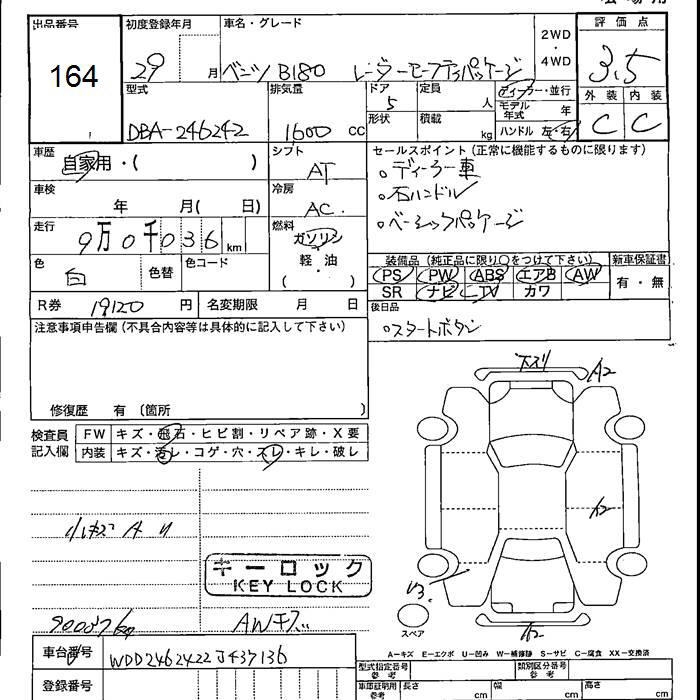 出品番号 初度登録年月 車名・グレード 2WD・4WD 評価点
164 29 月 ベンツ B180 レーダーセーフティパッケージ 3.5
型式 排気量 ドア 定員 ディーラー・並行 外装 内装
DBA-246242 1600 cc 5 人 モデル年式 年 C C
形状 積載 kg ハンドル 左・右
車歴 シフト セールスポイント(正常に機能するものに限ります)
自家用・( ) AT 。ディーラー車
車検 冷房 。右ハンドル
年 月( 日) AC 。ベーシックパッケージ
走行 燃料
9万0千036 km ガソリン 装備品(純正品に限り○をつけて下さい) 新車保証書
色 色替 色コード 軽・油 PS PW ABS エアB AW 有・無
白 ( ) SR ナビ TV カワ
R券 19120 円 名変期限 月 日 後日品
注意事項申告欄(不具合内容等は具体的に記入して下さい) 。スタートボタン
下スリ A2
修復歴 有(箇所 )
検査員記入欄 FW キズ・飛石・ヒビ割・リペア跡・X要
内装 キズ・汚レ・コゲ・穴・スレ・キレ・破レ
キーロック
KEY LOCK
スペア
AWキズ
A−キズ E−エクボ U−凹み W−補修跡 S−サビ C−腐食 XX−交換済
車台番号 WDD2462422J437136 型式指定番号 参考 類別区分番号 参考
登録番号 車庫証明用 参考 長さ cm 幅 cm 高さ cm